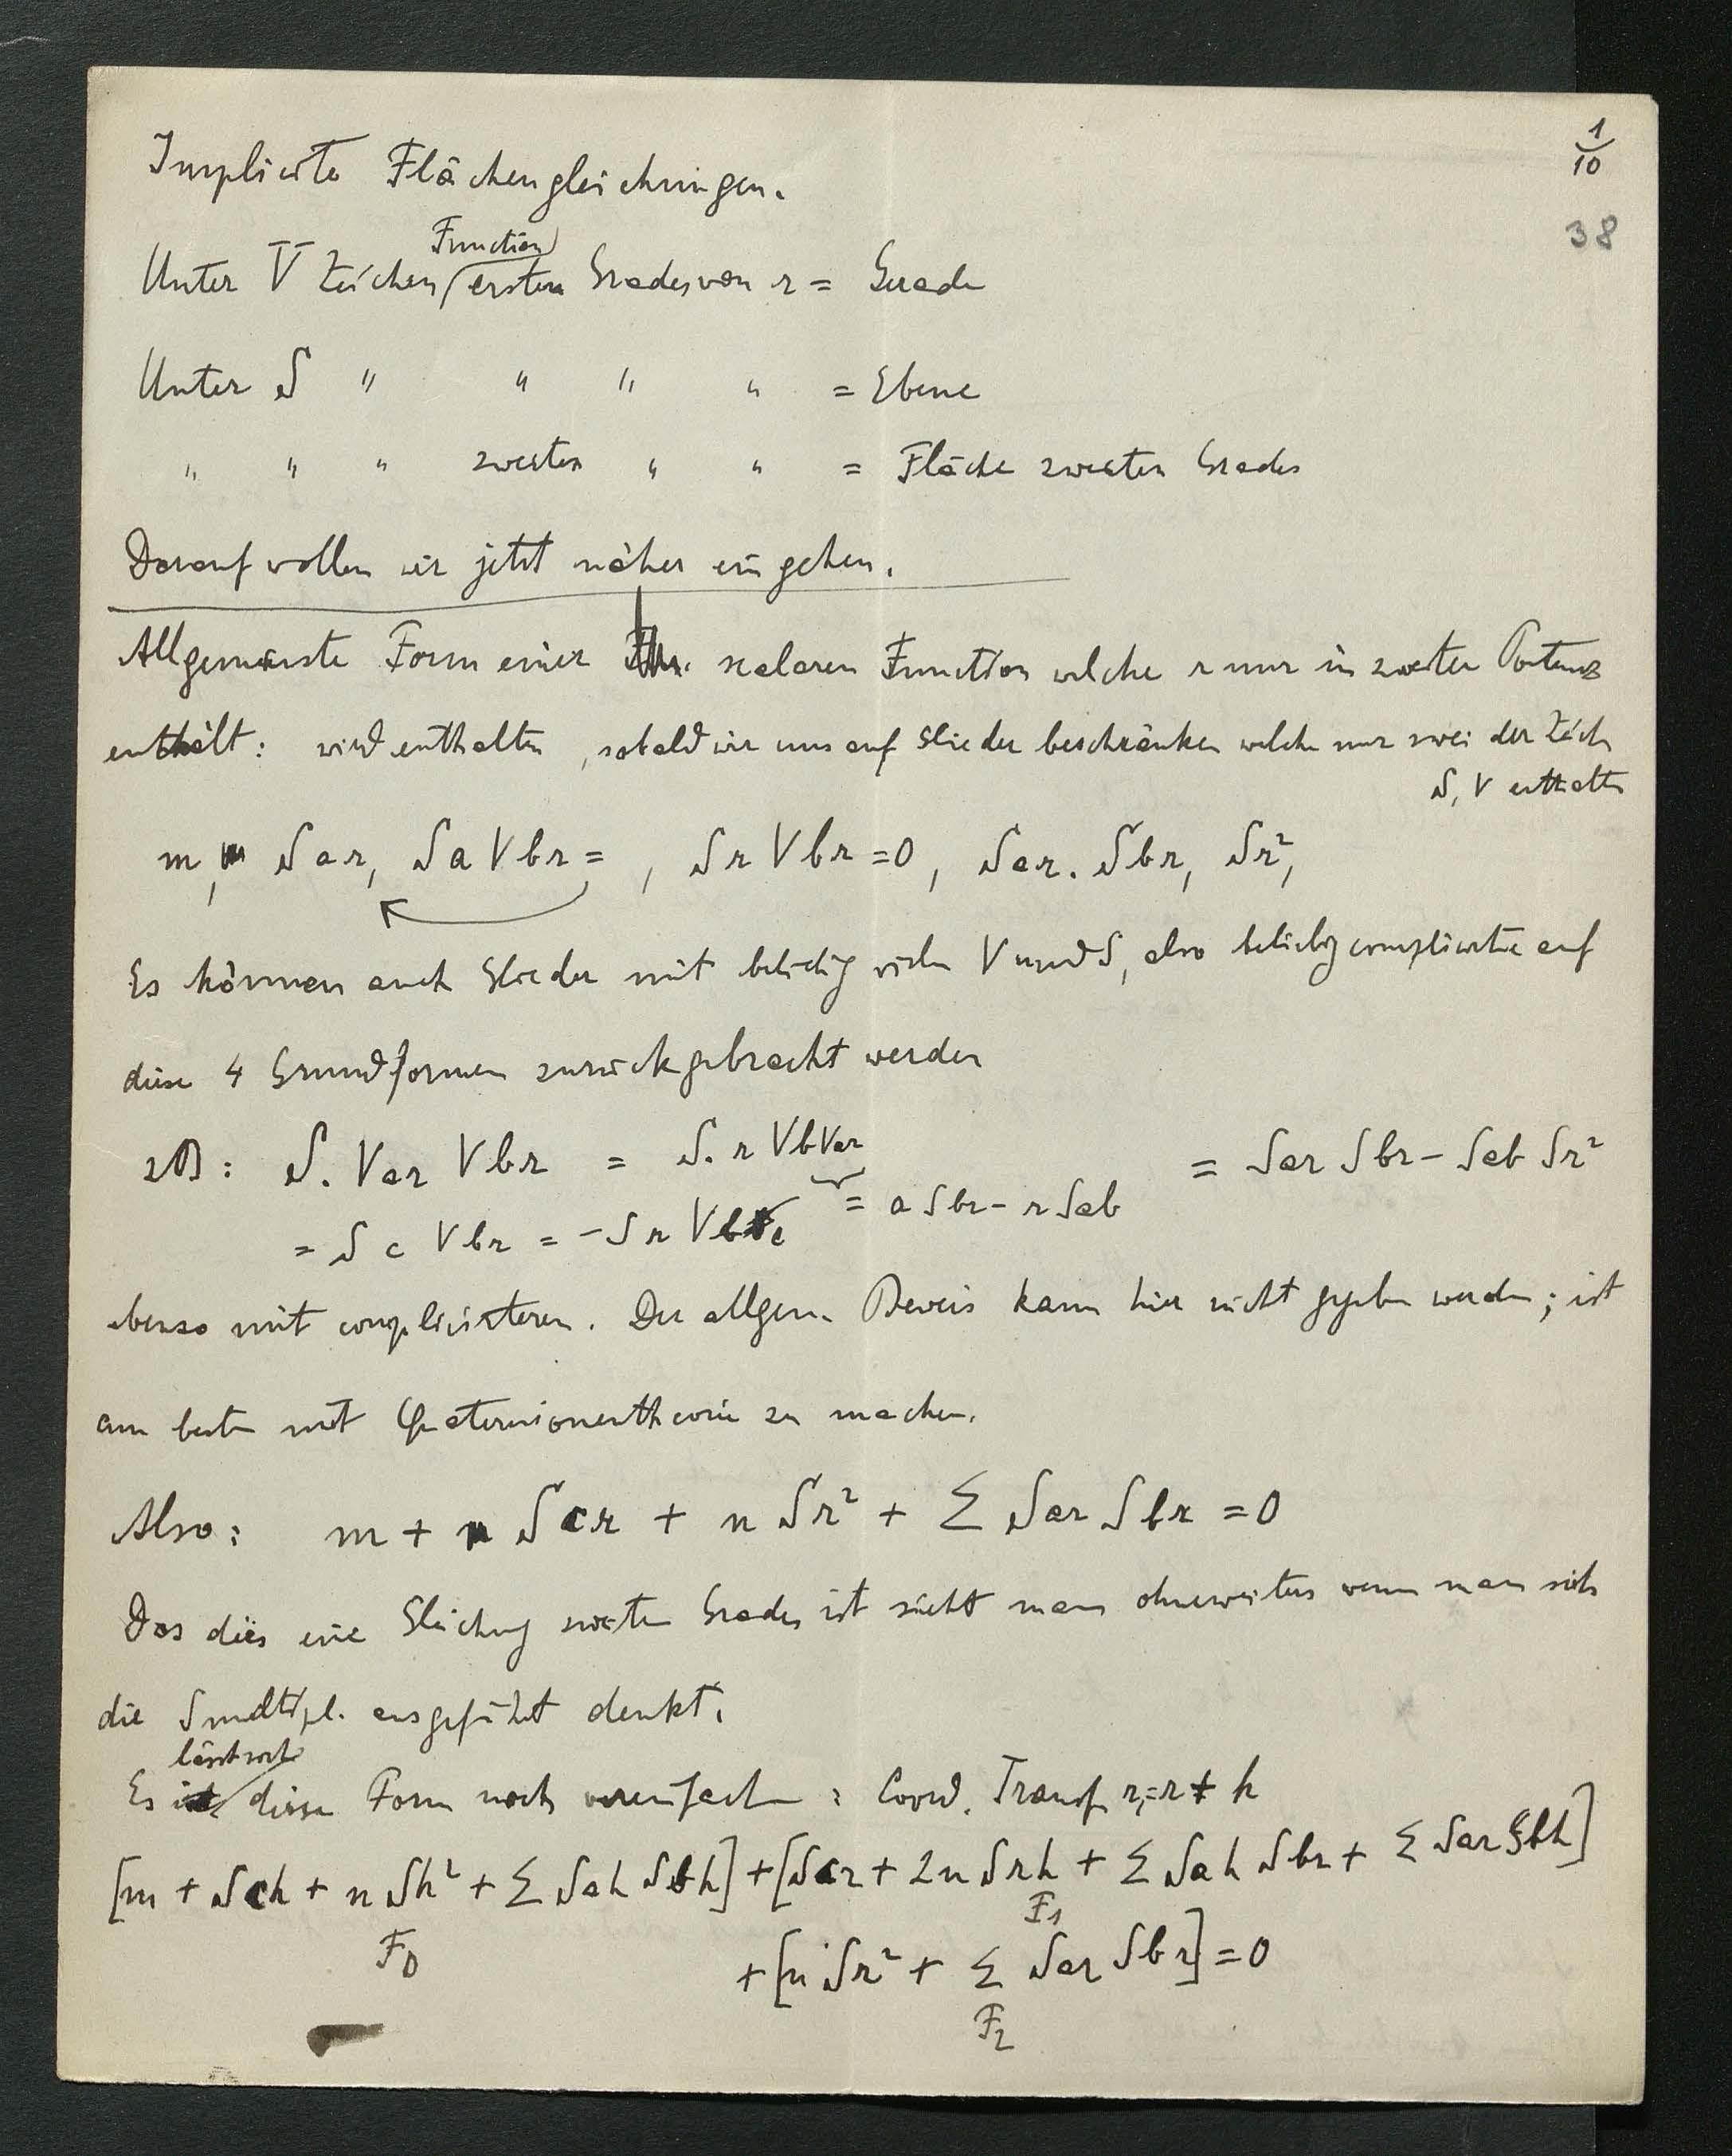 1/10
38
Implicite Flächengleichungen.
Function
Unter V Zeichen ersten Grades von r = Gerade
Unter S " " " " = Ebene
" " " zweiten " " = Fläche zweiten Grades
Darauf wollen wir jetzt näher eingehen.
Allgemeinste Form einer scalaren Function welche r nur in zweiter Potenz
enthält: wird enthalten, sobald wir uns auf Glieder beschränken welche nur zwei der Zeich
S, V enthalten
m, Sar, SaVbr = , SrVbr = 0, Sar. Sbr, Sr²,
Es können auch Glieder mit beliebig vielen V und S, also beliebig complicirte auf
diese 4 Grundformen zurückgebracht werden
zB: S. Var Vbr = S. r VbVar = Sar Sbr - Sab Sr²
= S c Vbr = - Sr Vbc = a Sbr - r Sab
ebenso mit complicirteren. Der allgem. Beweis kann hier nicht gegeben werden; ist
am besten mit Quaternionentheorie zu machen.
Also: m + Scr + n Sr² + Σ Sar Sbr = 0
Das dies eine Gleichung zweiten Grades ist sieht man ohneweiters wenn man sich
die Smultipl. ausgeführt denkt.
lässt sich
Es diese Form noch vereinfachen: Coord. Transf r₁=r+h
[m + Sch + n Sh² + Σ Sah Sbh] + [Scr + 2n Srh + Σ Sah Sbr + Σ Sar Sbh]
F₀ F₁
+ [n Sr² + Σ Sar Sbr] = 0
F₂